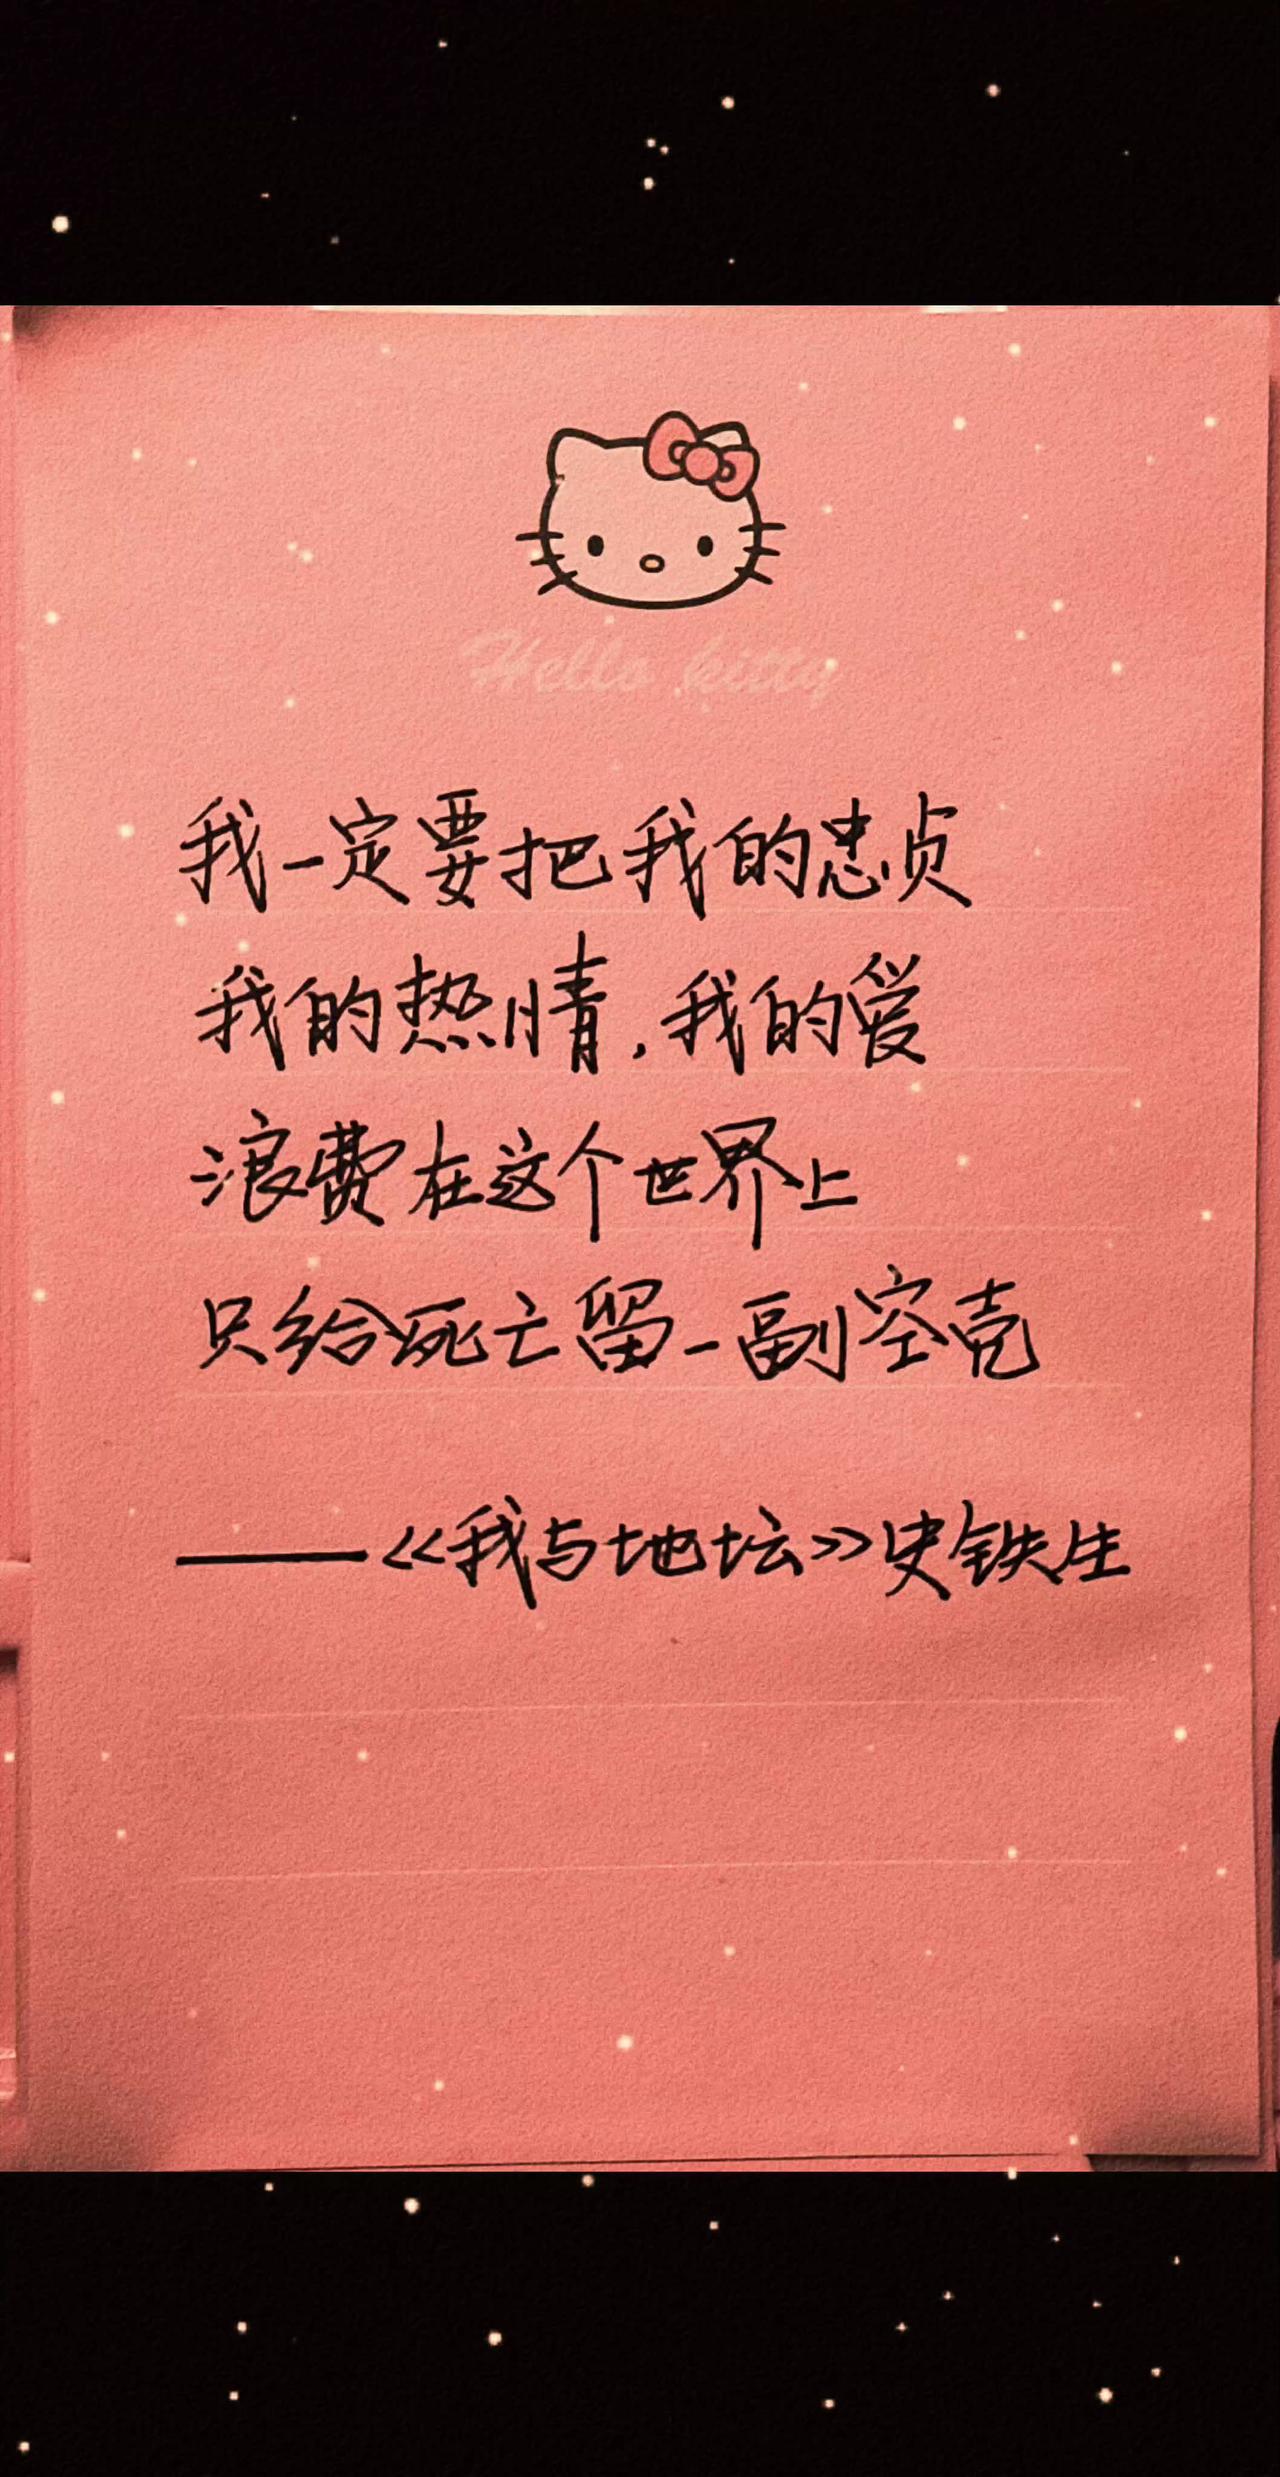 Hello kitty
我一定要把我的忠贞
我的热情,我的爱
浪费在这个世界上
只给死亡留一副空壳
——《我与地坛》史铁生